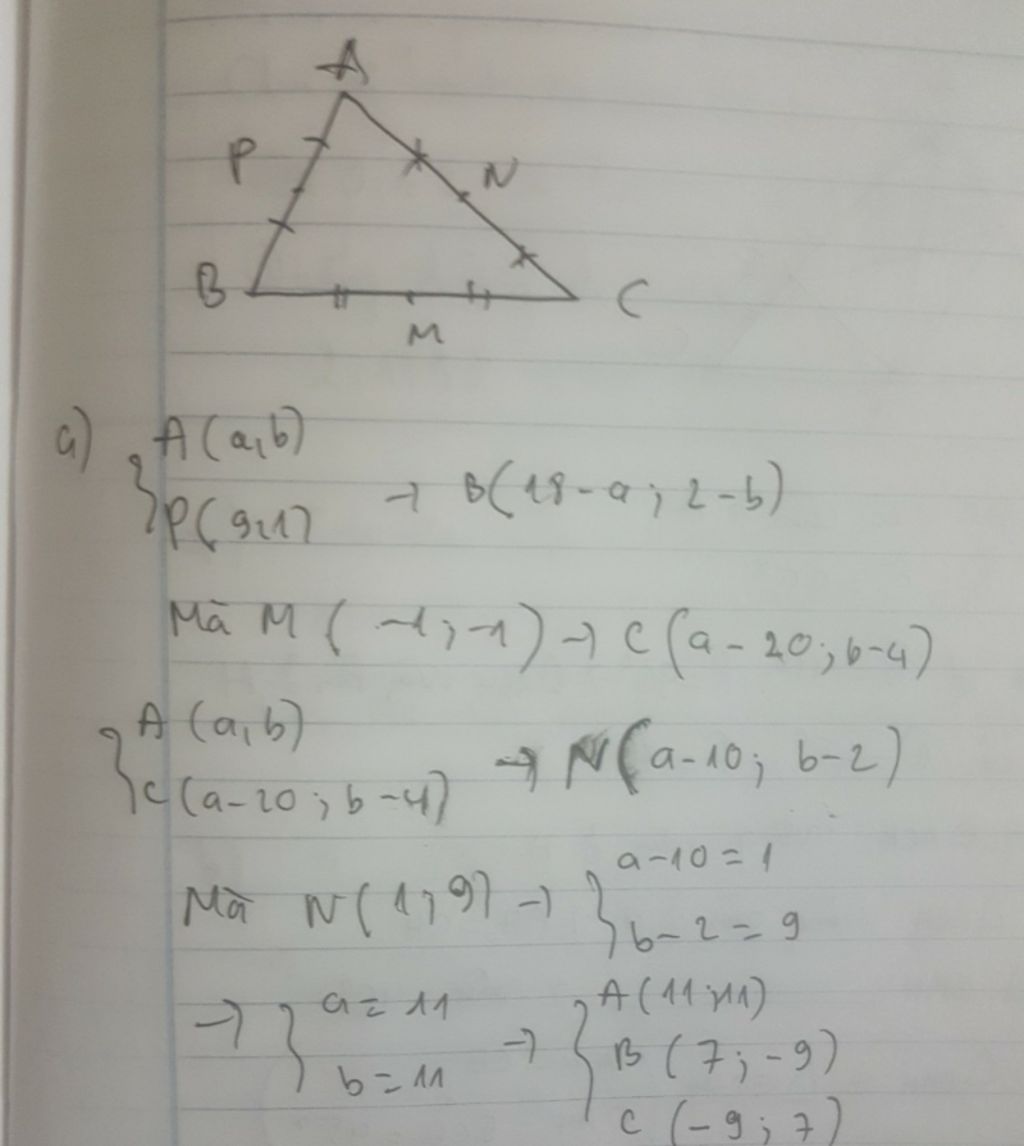 A
P
N
B
C
M
a) { A(a,b)
P(9;1) → B(18-a; 2-b)
Mà M(-1;-1) → C(a-20; b-4)
{ A(a,b)
C(a-20; b-4) → N(a-10; b-2)
Mà N(1;9) → { a-10=1
b-2=9
→ { a=11
b=11 → { A(11;11)
B(7;-9)
C(-9;7)